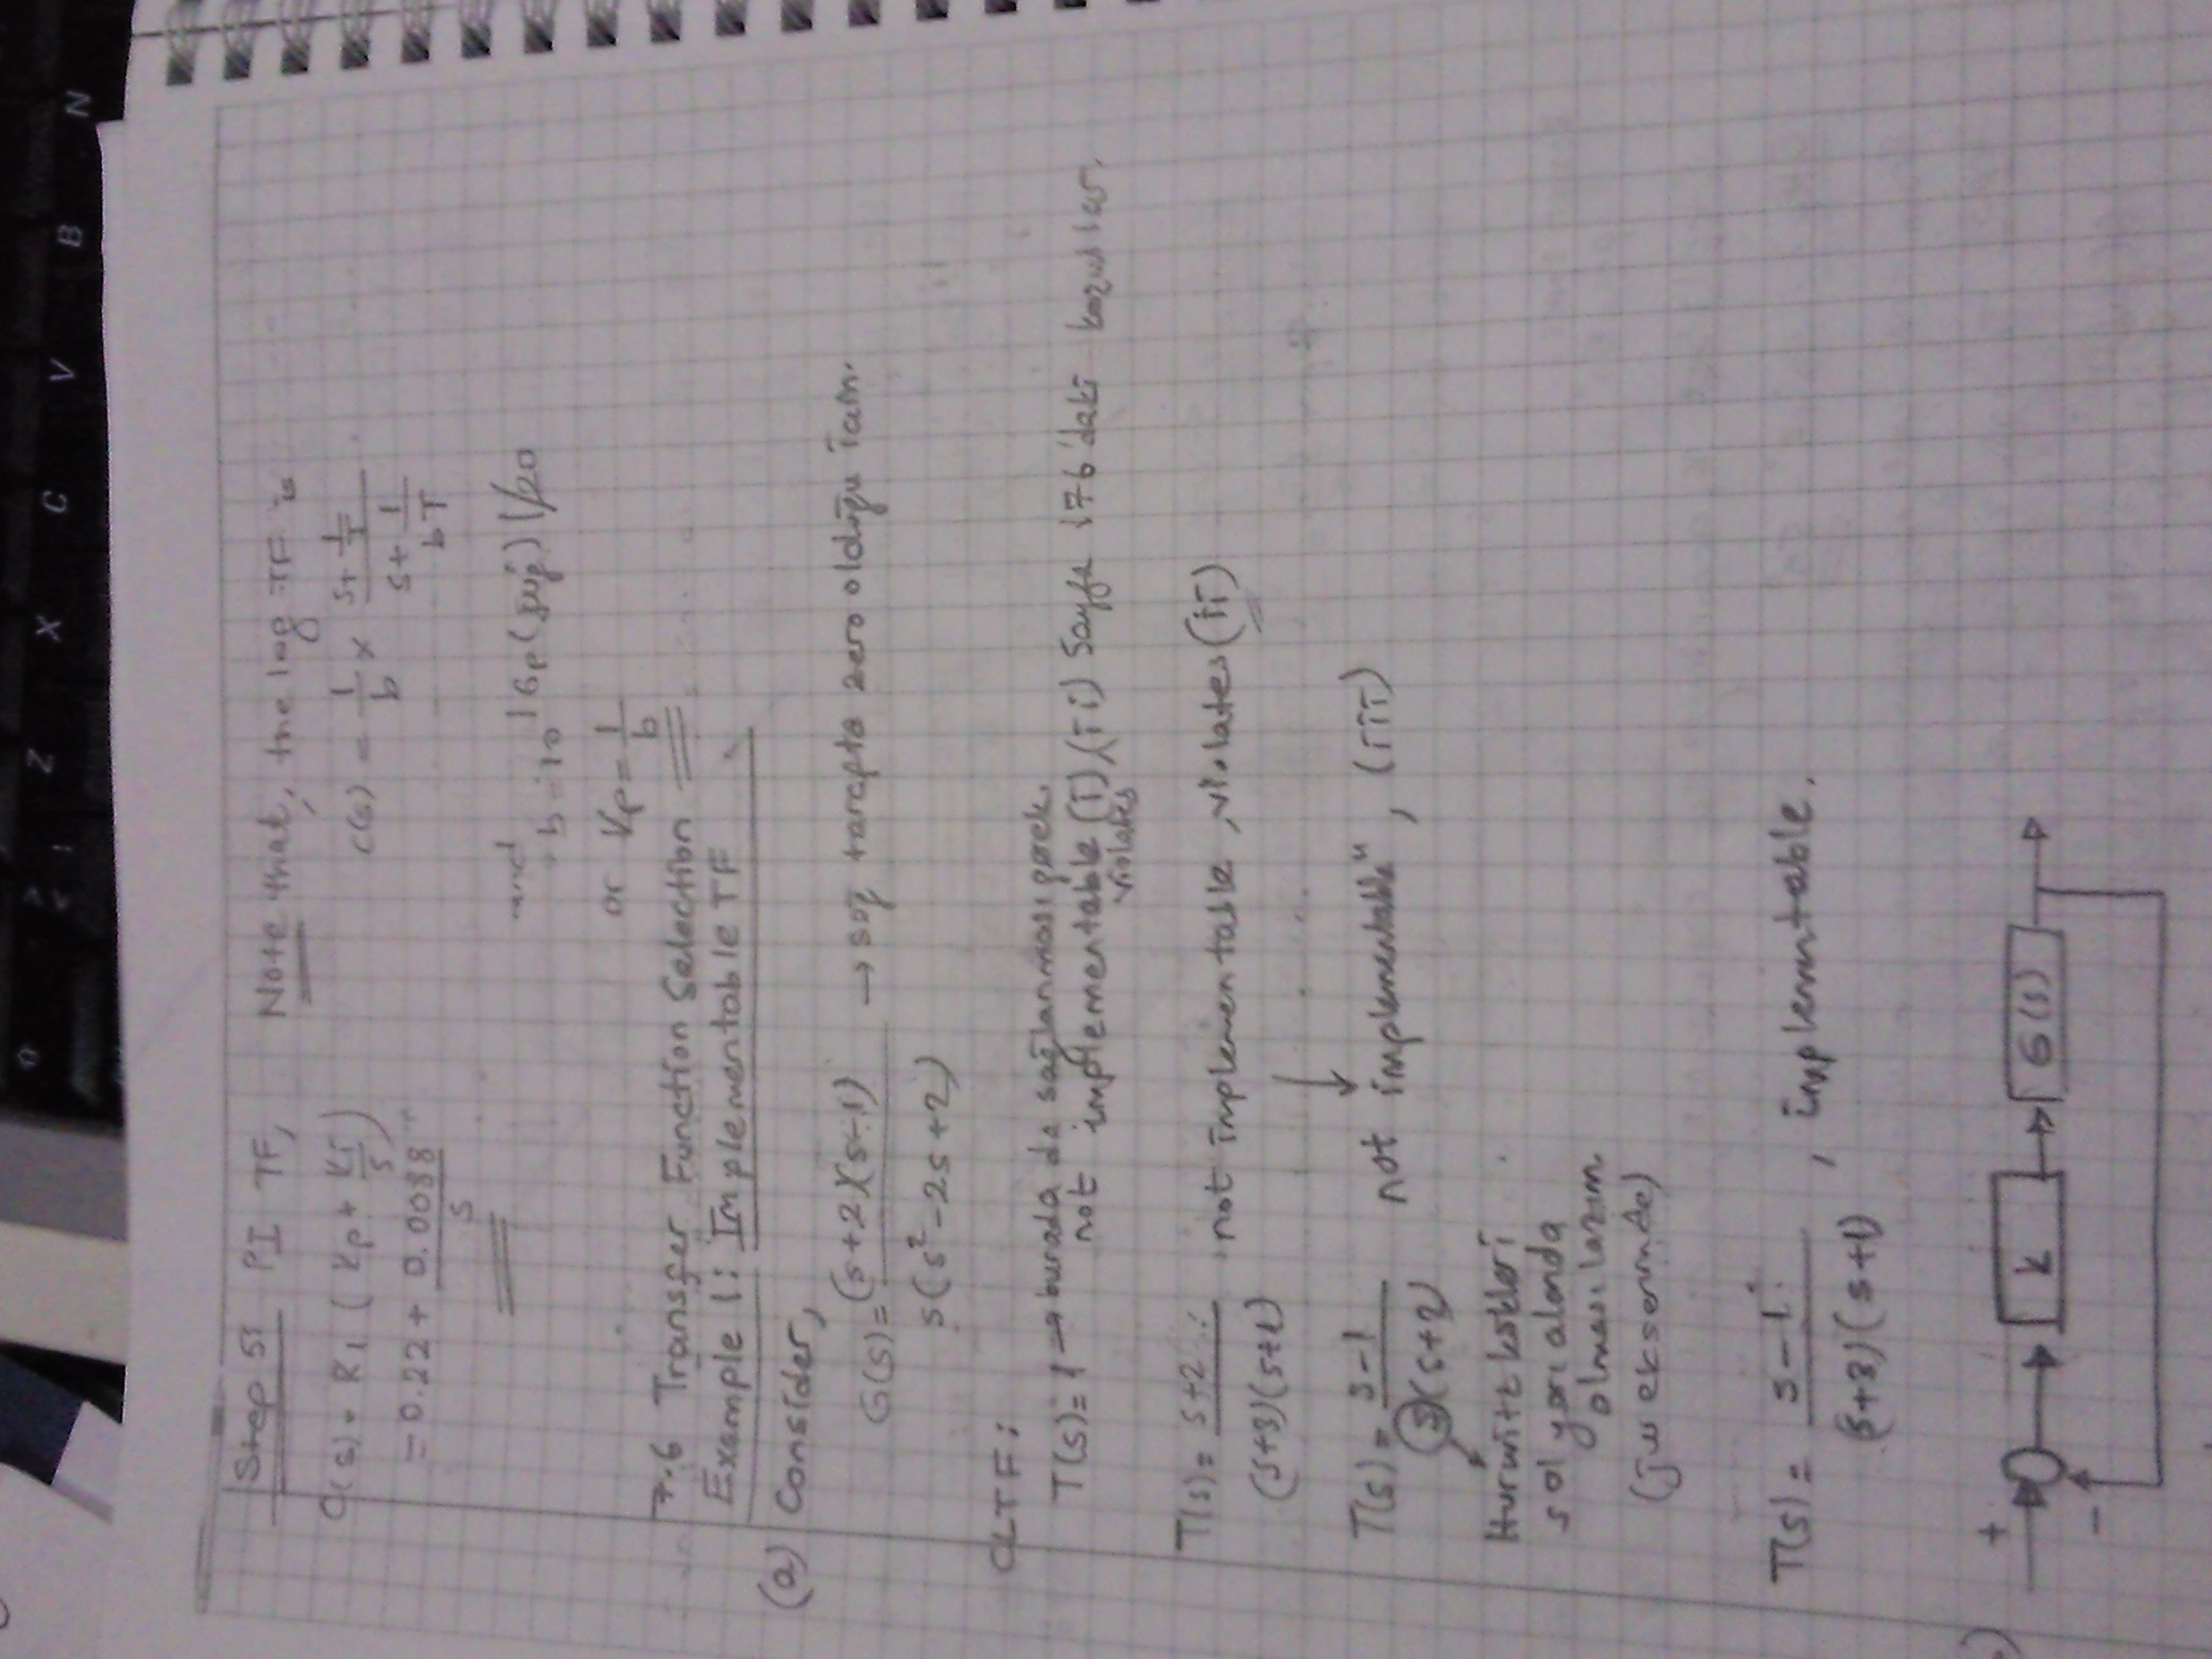 Step 5: PI TF,
C(s) = R1 ( Kp + KI/s )
= 0.22 + 0.0088/s
Note that, the lag TF is
C(s) = 1/b x (s+1/T)/(s+1/bT)
and
b = 10^|Gp(jwg)|/20
or Kp = 1/b
7.6 Transfer Function Selection
Example 1: Implementable TF
(a) Consider,
G(s) = (s+2)(s-1)/s(s²-2s+2) → sağ tarafta zero olduğu için.
CLTF:
T(s) = 1 → burada da sağlanması gerek.
not implementable (i),(ii) Sayfa 176'daki koşullar.
violates
T(s) = s+2/(s+3)(s+1) not implementable, violates (ii)
T(s) = s-1/s(s+2) not implementable", (iii)
Hurwitz kökleri
sol yarı alanda
olması lazım
(jw ekseninde)
T(s) = s-1/(s+3)(s+1) , implemntable.
+
-
K
G(s)
Z X C V B N